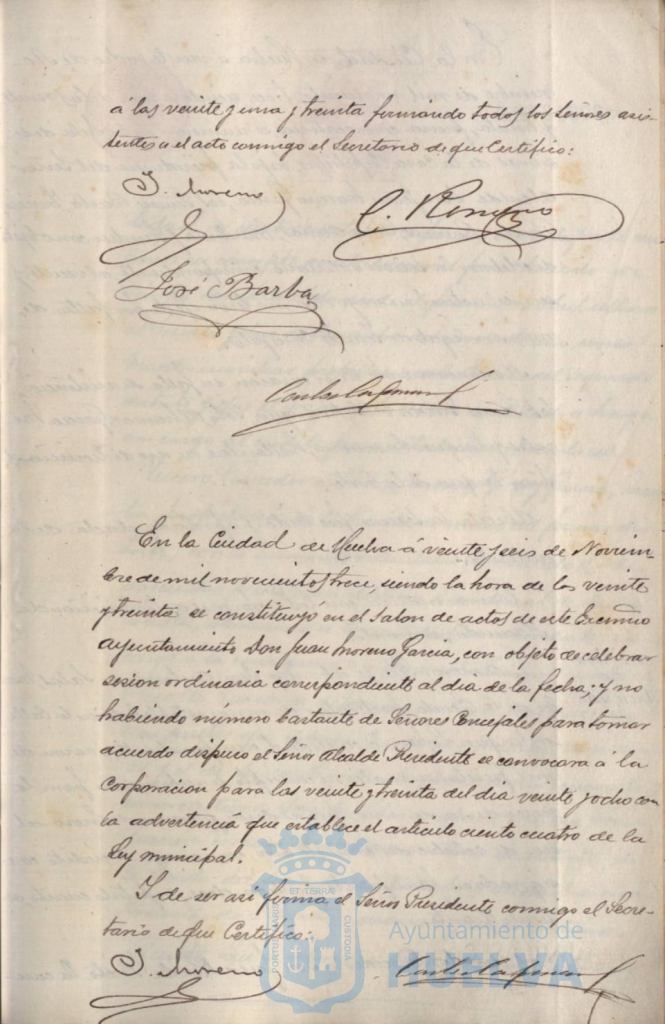 á las veinte y una y treinta firmando todos los Señores asis-
tentes a el acto conmigo el Secretario de que Certifico:
J. Moreno
José Barba
En la Ciudad de Huelva á veinte y seis de Noviem-
bre de mil novecientos trece, siendo la hora de las veinte
y treinta se constituyó en el Salon de actos de este Excmo
Ayuntamiento Don Juan Moreno Garcia, con objeto de celebrar
sesion ordinaria correspondiente al dia de la fecha; y no
habiendo número bastante de Señores Concejales para tomar
acuerdo dispuso el Señor Alcalde Presidente se convocara á la
Corporacion para las veinte y treinta del dia veinte y ocho con
la advertencia que establece el articulo ciento cuatro de la
Ley municipal.
Y de ser asi firma el Señor Presidente conmigo el Secre-
tario de que Certifico:
J. Moreno
PORTUS MARIS ET TERRAE CUSTODIA
Ayuntamiento de
HUELVA